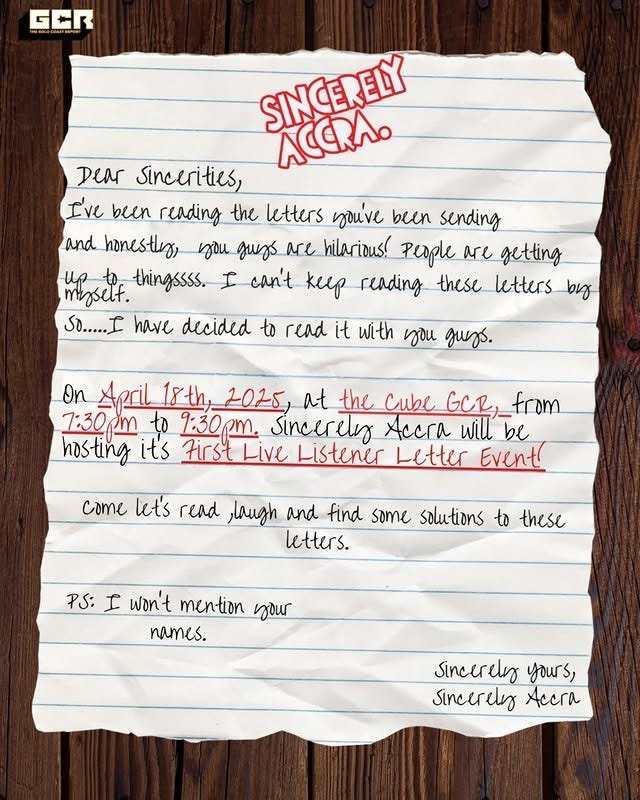 GCR
THE GOLD COAST REPORT
SINCERELY
ACCRA.
Dear Sincerities,
I've been reading the letters you've been sending
and honestly, you guys are hilarious! People are getting
up to thingssss. I can't keep reading these letters by
myself.
So.....I have decided to read it with you guys.
On April 18th, 2025, at the Cube GCR, from
7:30pm to 9:30pm. Sincerely Accra will be
hosting it's First Live Listener Letter Event!
Come let's read ,laugh and find some solutions to these
letters.
PS: I won't mention your
names.
Sincerely yours,
Sincerely Accra